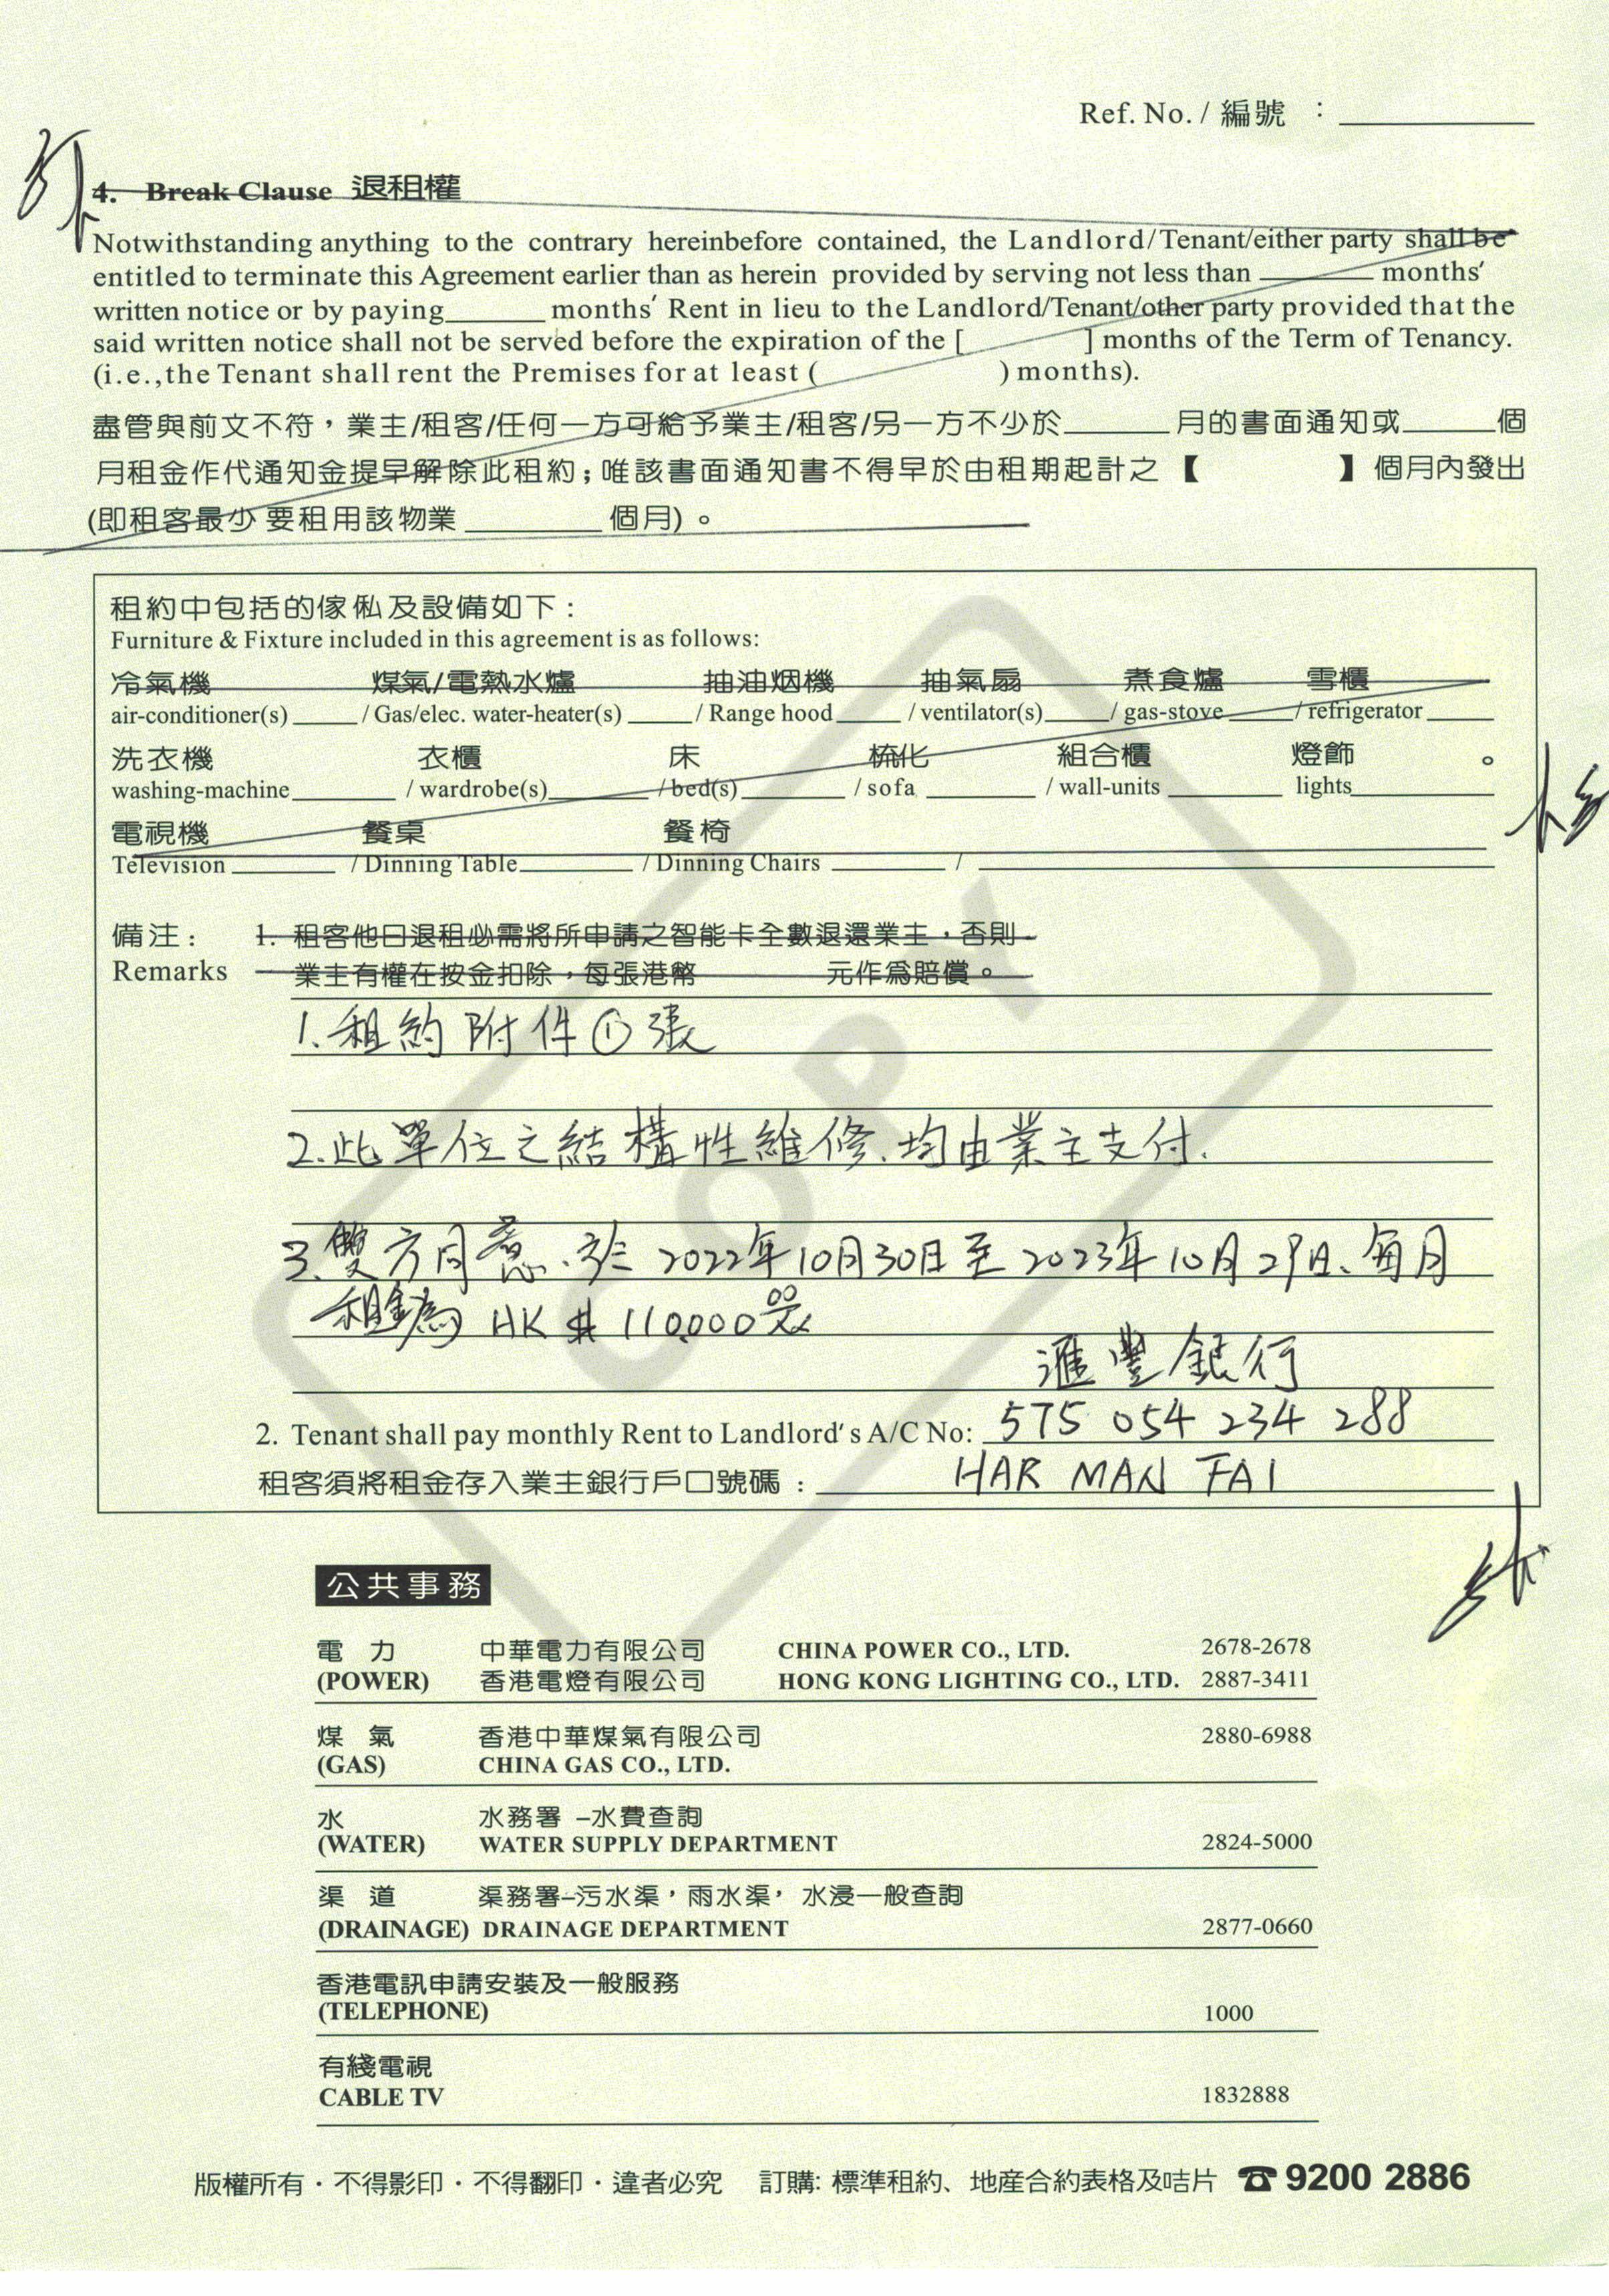 Ref. No. / 編號 ：
4. Break Clause 退租權
Notwithstanding anything to the contrary hereinbefore contained, the Landlord/Tenant/either party shall be
entitled to terminate this Agreement earlier than as herein provided by serving not less than ______ months'
written notice or by paying______ months' Rent in lieu to the Landlord/Tenant/other party provided that the
said written notice shall not be served before the expiration of the [ ] months of the Term of Tenancy.
(i.e.,the Tenant shall rent the Premises for at least ( ) months).
盡管與前文不符，業主/租客/任何一方可給予業主/租客/另一方不少於______月的書面通知或______個
月租金作代通知金提早解除此租約；唯該書面通知書不得早於由租期起計之【 】個月內發出
(即租客最少要租用該物業______個月)。
租約中包括的傢俬及設備如下：
Furniture & Fixture included in this agreement is as follows:
冷氣機 煤氣/電熱水爐 抽油烟機 抽氣扇 煮食爐 雪櫃
air-conditioner(s)_____ / Gas/elec. water-heater(s)_____ / Range hood_____ / ventilator(s)_____ / gas-stove_____ / refrigerator_____
洗衣機 衣櫃 床 梳化 組合櫃 燈飾 。
washing-machine______ / wardrobe(s)______ / bed(s)______ / sofa ______ / wall-units ______ lights______
電視機 餐桌 餐椅
Television______ / Dinning Table______ / Dinning Chairs ______ / ______
備注： 1. 租客他日退租必需將所申請之智能卡全數退還業主，否則
Remarks 業主有權在按金扣除，每張港幣 元作爲賠償。
1. 租約附件①張
2. 此單位之結構性維修、均由業主支付.
3. 雙方同意、於 2022年10月30日至 2023年10月29日、每月
租金為 HK$110,000.00元
滙豐銀行
2. Tenant shall pay monthly Rent to Landlord's A/C No: 575 054 234 288
租客須將租金存入業主銀行戶口號碼： HAR MAN FAI
COPY
公共事務
電 力 中華電力有限公司 CHINA POWER CO., LTD. 2678-2678
(POWER) 香港電燈有限公司 HONG KONG LIGHTING CO., LTD. 2887-3411
煤 氣 香港中華煤氣有限公司 2880-6988
(GAS) CHINA GAS CO., LTD.
水 水務署 –水費查詢
(WATER) WATER SUPPLY DEPARTMENT 2824-5000
渠 道 渠務署–污水渠，雨水渠， 水浸一般查詢
(DRAINAGE) DRAINAGE DEPARTMENT 2877-0660
香港電訊申請安裝及一般服務
(TELEPHONE) 1000
有綫電視
CABLE TV 1832888
版權所有·不得影印·不得翻印·違者必究 訂購: 標準租約、地産合約表格及咭片 ☎ 9200 2886